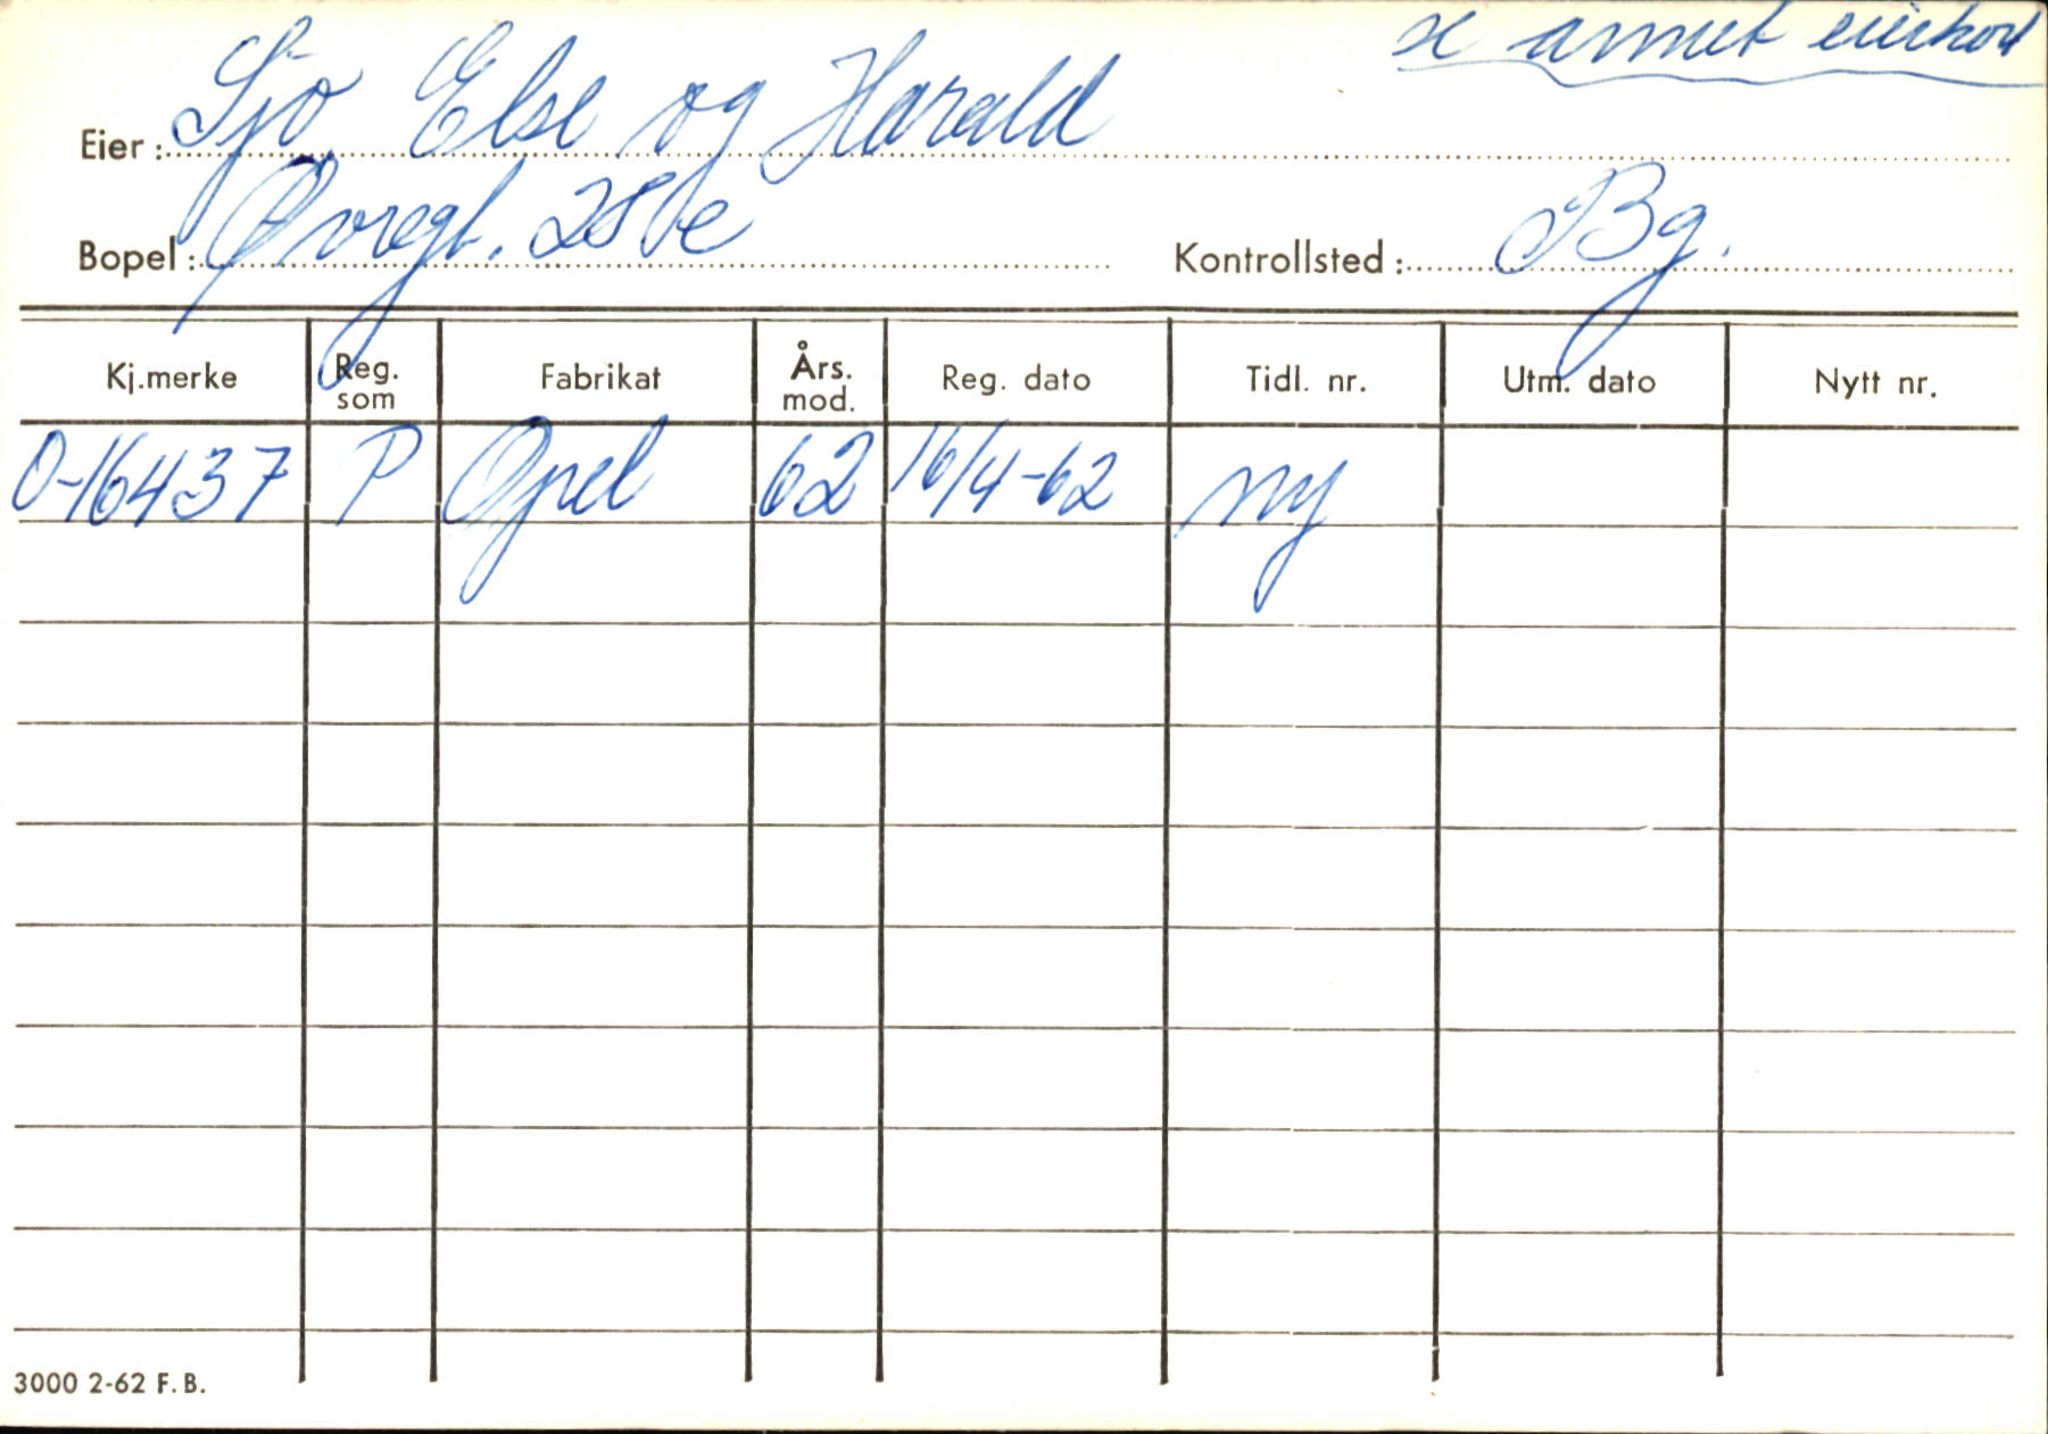 se annet eierkort
Eier: Sjo Else og Harald
Bopel: Øvregt. 28 Kontrollsted: Bg.
Kj.merke Reg. som Fabrikat Års. mod. Reg. dato Tidl. nr. Utm. dato Nytt nr.
O-16437 P Opel 62 16/4-62 ny
3000 2-62 F.B.